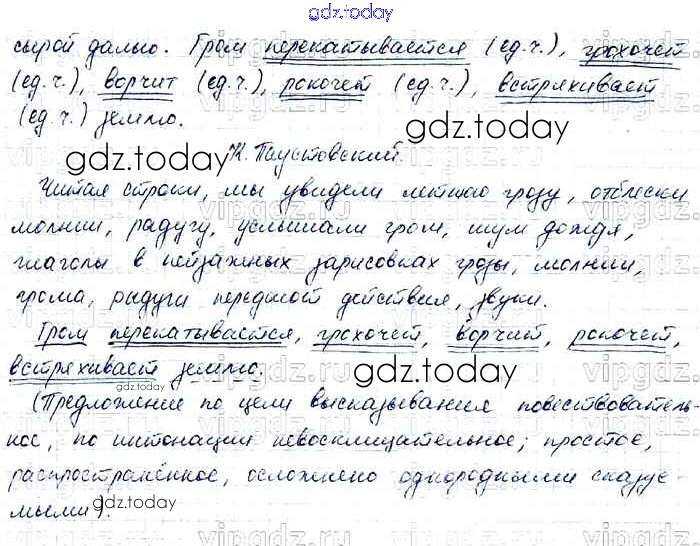 gdz.today
сырой далью. Гром перекатывается (ед.ч.), грохочет
(ед.ч.), ворчит (ед.ч.), рокочет (ед.ч.), встряхивает
(ед.ч.) землю.
gdz.today
gdz.today
К. Паустовский.
Читая строки, мы увидели летнюю грозу, отблески
молнии, радугу, услышали гром, шум дождя,
глаголы в пейзажных зарисовках грозы, молнии,
грома, радуги передают действия, звуки.
Гром перекатывается, грохочет, ворчит, рокочет,
встряхивает землю.
gdz.today
gdz.today
(Предложение по цели высказывания повествователь-
ное, по интонации невосклицательное; простое,
распространённое, осложнено однородными сказуе-
мыми).
gdz.today
vipgdz.ru